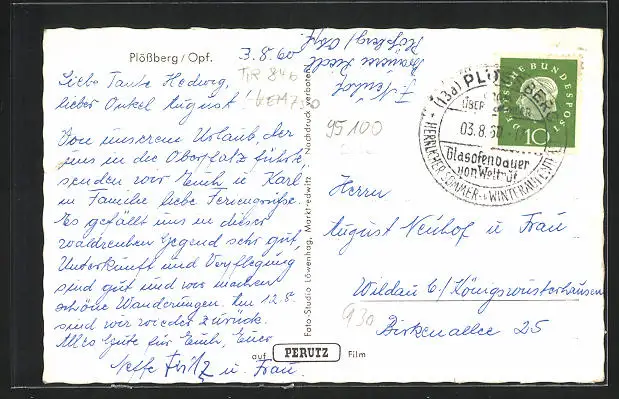 Plößberg/Opf.
3.8.60
Liebe Tante Hedwig,
lieber Onkel August!
Von unserem Urlaub, der
uns in die Oberpfalz führte,
senden wir Euch u. Karl
in Familie liebe Feriengrüße.
Es gefällt uns in dieser
waldreichen Gegend sehr gut,
Unterkunft und Verpflegung
sind gut und wir machen
schöne Wanderungen. Am 12.8.
sind wir wieder zurück.
Alles Gute für Euch, Euer
Neffe Fritz u. Frau.
F. Neuhof
Plößberg/Opf.
95100
Foto-Studio Löwenhag, Marktredwitz - Nachdruck verboten
auf PERUTZ Film
DEUTSCHE BUNDESPOST
10
(13a) PLÖSSBERG
ÜBER
03.8.60
Glasofenbauer
von Weltruf
HERRLICHER SOMMER- u. WINTERAUFENTHALT
Herrn
August Neuhof u. Frau
Wildau b/ Königswusterhausen
Birkenallee 25
930